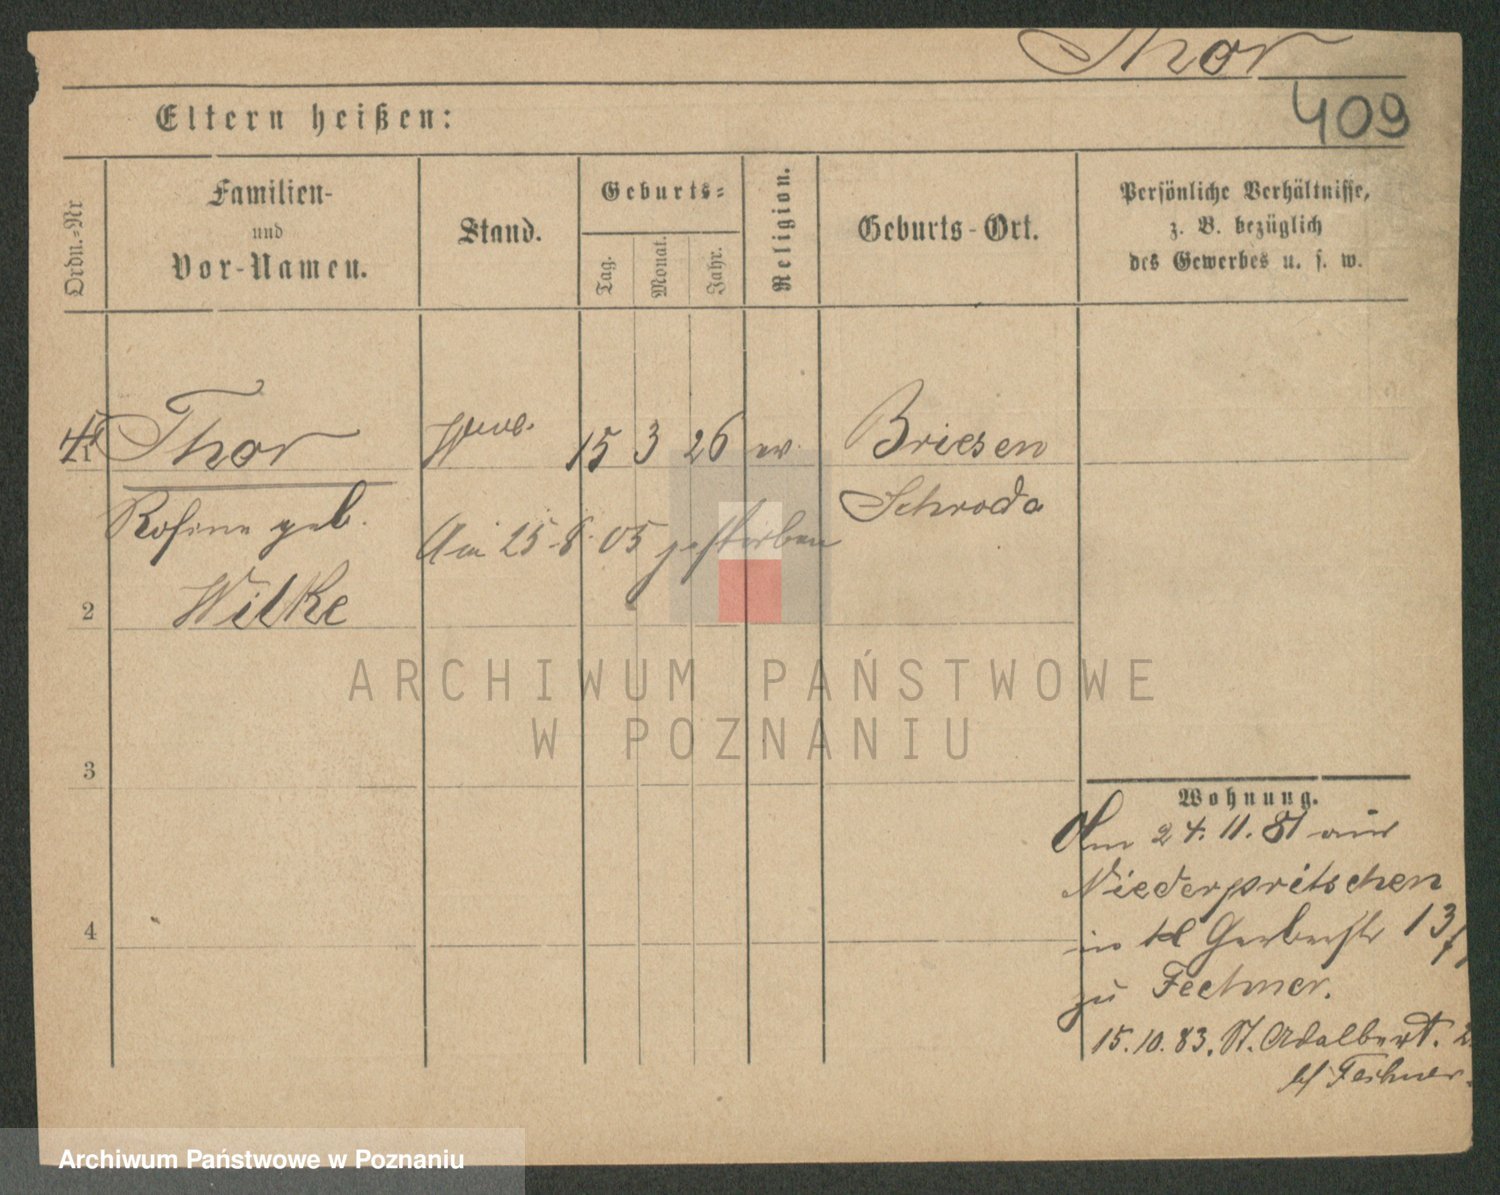 Thor
409
Eltern heißen:
Ordn.-Nr
Familien-
und
Vor-Namen.
Stand.
Geburts-
Tag.
Monat.
Jahr.
Religion.
Geburts-Ort.
Persönliche Verhältnisse,
z. B. bezüglich
des Gewerbes u. s. w.
1 Thor 15 3 26 ev. Briesen
Rosine geb. Schroda
Am 25.8.05 gestorben
2 Wilke
ARCHIWUM PAŃSTWOWE
W POZNANIU
3
Wohnung.
Am 24.11.81 aus
Niederpritschen
4
in Gerberstr 13
zu Fechner.
15.10.83. St. Adalbert. 2
b/ Fechner.
Archiwum Państwowe w Poznaniu